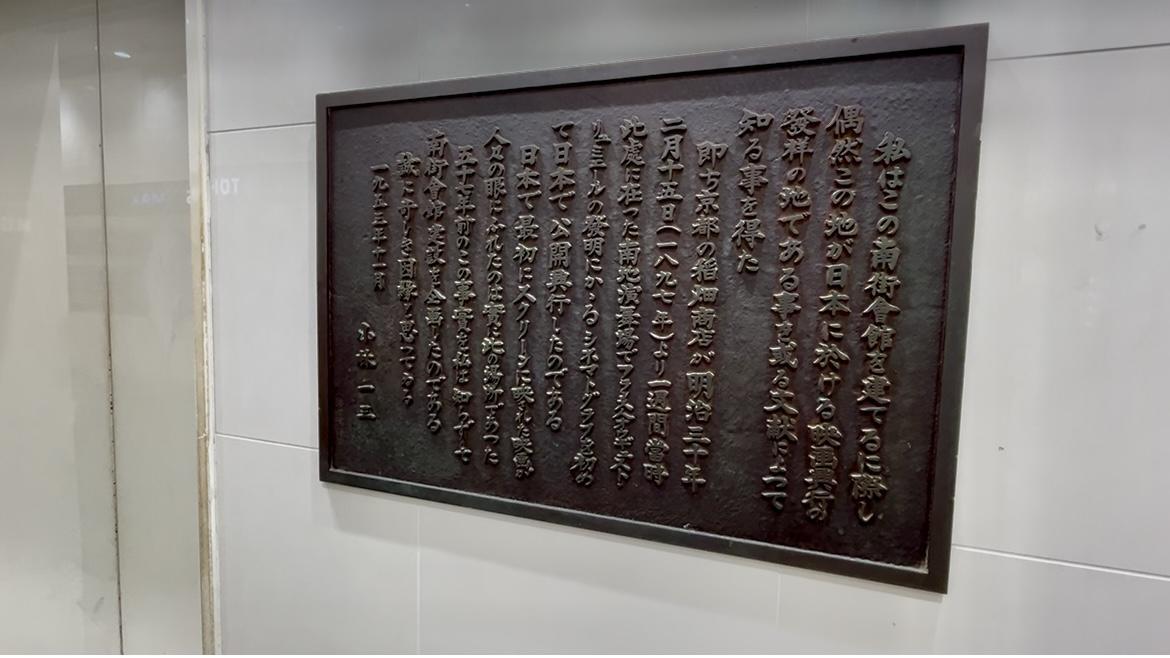 私はこの南街會館を建てるに際し
偶然この地が日本に於ける映画興行の
發祥の地である事を或る文献によつて
知る事を得た
即ち京都の稲畑商店が明治三十年
二月十五日(一八九七年)より一週間當時
此處に在つた南地演舞場でフランスオーギュスト
リュミエールの發明にかゝるシネマトグラフを初め
て日本で公開興行したのである
日本で最初にスクリーンに映れた映画が
人々の眼にふれたのは實に此の場所であつた
五十七年前のこの事實を私は知らずして
南街會館建設を企画したのである
誠に奇しき因縁と思つてゐる
一九五三年十一月
小林一三
TO